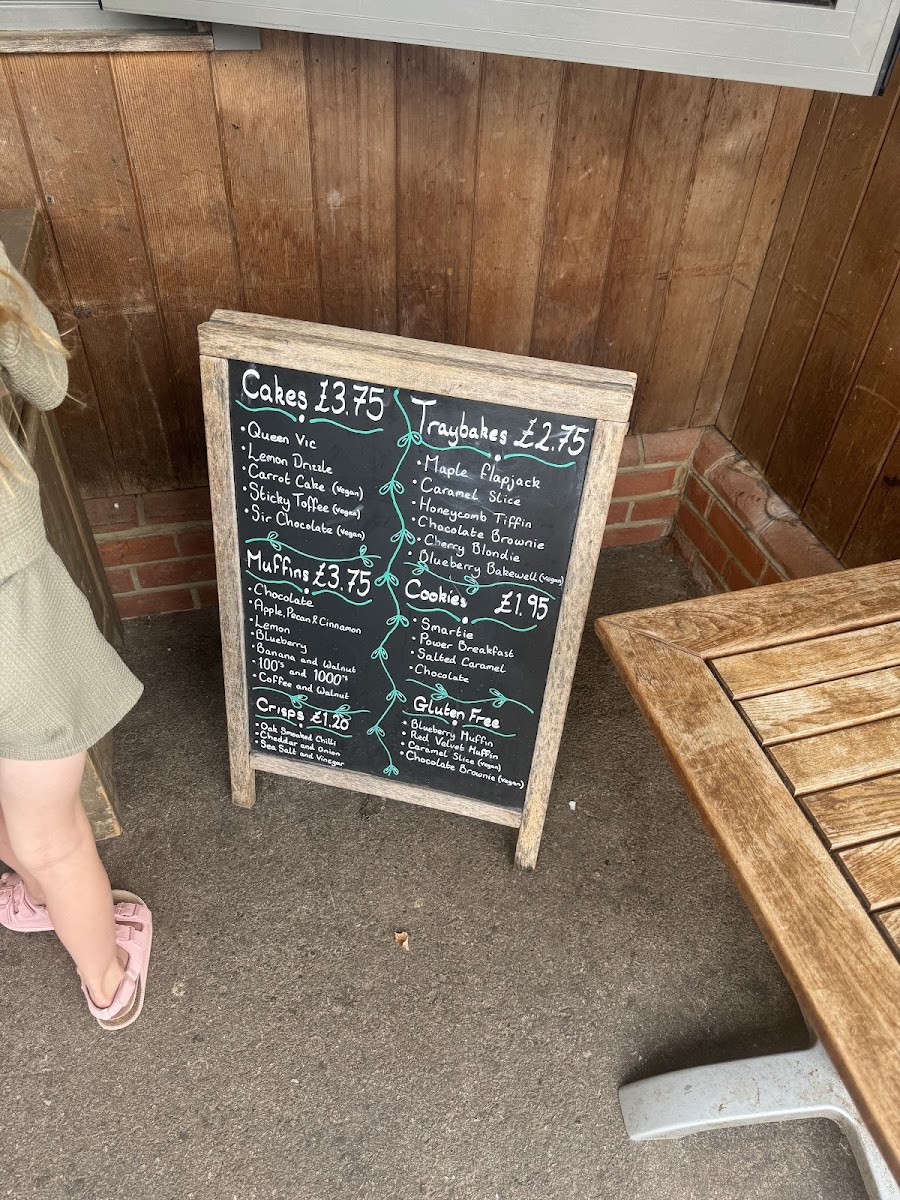 Cakes £3.75
• Queen Vic
• Lemon Drizzle
• Carrot Cake (vegan)
• Sticky Toffee (vegan)
• Sir Chocolate (vegan)
Muffins £3.75
• Chocolate
• Apple, Pecan & Cinnamon
• Lemon
• Blueberry
• Banana and Walnut
• 100's and 1000's
• Coffee and Walnut
Crisps £1.20
• Oak Smoaked Chilli
• Cheddar and Onion
• Sea Salt and Vinegar
Traybakes £2.75
• Maple flapjack
• Caramel Slice
• Honeycomb Tiffin
• Chocolate Brownie
• Cherry Blondie
• Blueberry Bakewell (vegan)
Cookies £1.95
• Smartie
• Power Breakfast
• Salted Caramel
• Chocolate
Gluten Free
• Blueberry Muffin
• Red Velvet Muffin
• Caramel Slice (vegan)
• Chocolate Brownie (vegan)